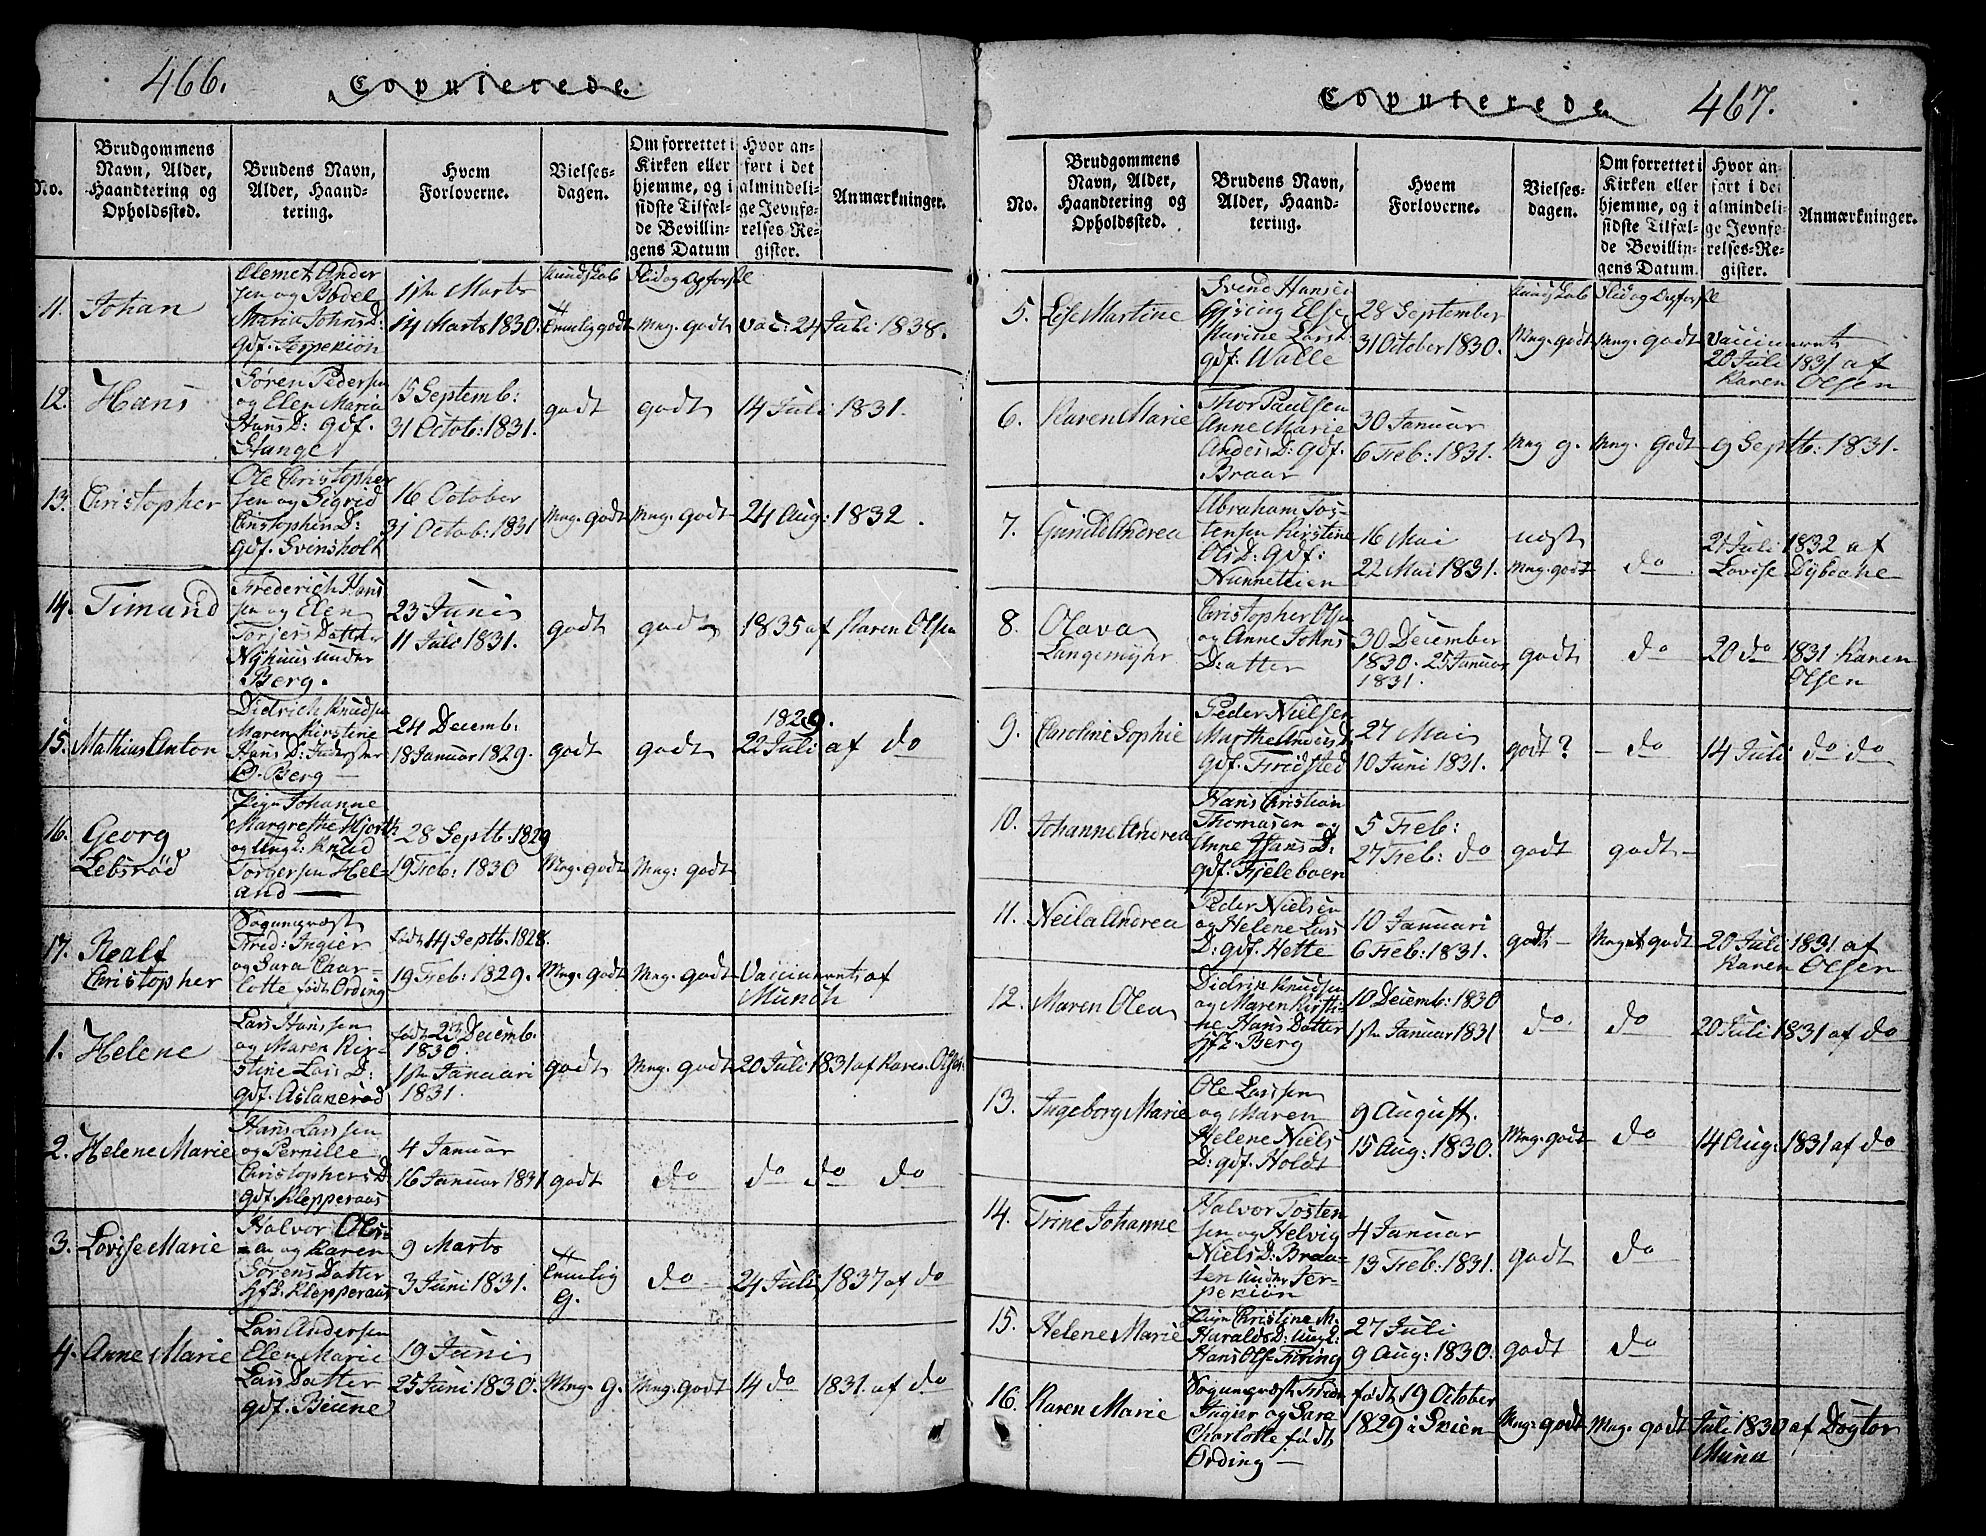 466.
Copulerede.
No.
Brudgommens
Navn, Alder,
Haandtering og
Opholdssted.
Brudens Navn,
Alder, Haand-
tering.
Hvem
Forloverne.
Vielses-
dagen.
Om forrettet i
Kirken eller
hjemme, og i
sidste Tilfæl-
de Bevillin-
gens Datum
Hvor an-
ført i det
almindeli-
ge Jevnfø-
relses-Re-
gister.
Anmærkninger.
Kundskab
Flid og Opførsel
11. Johan
Clemet Ander
sen og Bodel
Maria Johns D:
gdf. Jerpekiøn
1ste Marts
14 Marts 1830.
Temelig godt
Mng. godt
Vac: 24 Juli 1838.
12. Hans
Søren Pedersen
og Elen Maria
Hans D: gdf.
Stange
15 Septemb:
31 Octob: 1831.
godt
godt
14 Juli 1831.
13. Christopher
Ole Christopher
sen og Sigrid
Cristophers D:
gdf. Svinsholt
16 October
31 Octob: 1831
Mng. godt
Mng. godt
24 Aug: 1832.
14. Timand
Frederich Hans
sen og Elen
Torjers Datter
Nyhuus under
Berg.
23 Juni
11 Juli 1831.
godt
godt
1835 af Karen Olsen
15. Mathius Anton
Dietrich Knudsen
Maren Kirstine
Hans D: Inderster
Ø. Berg
24 Decemb.
18 Januar 1829.
godt
godt
1829.
22 Juli af do
16. Georg
Lebsrød
Pign Johanne
Margrethe Hjorth
og Ungk: Knud
Torgersen Hel-
and
28 Septb. 1829
19 Feb: 1830
Mng. godt
Mng: godt
17. Realf
Christopher
Sogneprest
Fred: Ingier
og Sara Caar
lotte født Ording
født 14 Septb. 1828.
19 Feb: 1829.
Mng. godt
Mng. godt
Vaccineret af
Munch
1. Helene
Lars Hanssen
og Maren Kir-
stine Lars D:
gdf. Aslakerød
født 23 Decemb.
1830.
1ste Januari
1831.
godt
Mng. godt
20 Juli 1831 af Karen Olsen
2. Helene Marie
Hans Larssen
og Pernille
Christophers D
gdf. Klepperaas
4 Januar
16 Januar 1831
godt
do
do do do
3. Lovise Marie
Halvor Ols-
en og Karen
Sørens Datter
Hfk. Klepperaas
9 Marts
3 Juni 1831.
Temelig
G.
do
24 Juli 1837 af do
4. Anne Marie
Lars Andersen
Elen Marie
Lars Datter
gdf. Beune
19 Juni
25 Juni 1830.
Mng. g.
Mng. godt
14 do 1831. af do
Copulerede. 467.
No.
Brudgommens
Navn, Alder,
Haandtering og
Opholdssted.
Brudens Navn,
Alder, Haand-
tering.
Hvem
Forloverne.
Vielses-
dagen.
Om forrettet i
Kirken eller
hjemme, og i
sidste Tilfæl-
de Bevillin-
gens Datum.
Hvor an-
ført i det
almindeli-
ge Jevnfø-
relses-Re-
gister.
Anmærkninger.
Kundskab
Flid og Opførsel
5. Lise Martine
Svend Hansen
Gjøring Else
Marine Lars D
gdf. Walle
28 September
31 October 1830.
Mng. godt
Mng. godt
Vaccineret
20 Juli 1831 af
Karen Olsen
6. Karen Marie
Thor Paulsen
Anne Marie
Anders D: gdf.
Braar
30 Januar
6 Feb: 1831.
Mng g.
Mng. godt
9 Septb. 1831.
7. Gunild Andrea
Abraham Tos-
tensen Kirstine
Ols D: gdf:
Nunnettien
16 Mai
22 Mai 1831.
Mng. godt
do
21 Juli 1832 af
Lovise Dybdahe
8. Olava
Langemyhr
Christopher Olsen
og Anne Johns
Datter
30 December
1830. 25 Januar
1831.
godt
do
20 do 1831 Karen
Olsen
9. Caroline Sophie
Peder Nielsen
Marthe Anders D
gdf. Fridsted
27 Mai
10 Juni 1831.
godt?
do
14 Juli do do
10. Johanne Andrea
Hans Christian
Thomasen og
Anne Hans D:
gdf. Fjeleboen
5 Feb:
27 Feb: do
godt
godt
11. Neila Andrea
Peder Nielsen
og Helene Lars
D: gdf. Hette
10 Januari
6 Feb: 1831.
godt
Meget godt
20 Juli 1831 af
Karen Olsen
12. Maren Olea
Didrik Knudsen
og Maren Kirsti-
ne Hans Datter
Hfk. Berg
10 Decemb: 1830
1ste Januar 1831
do.
do
20 Juli 1831 af do
13. Ingeborg Marie
Ole Larssen
og Maren
Helene Niels
D: gdf. Holdt
9 August.
15 Aug: 1830.
Mng. godt
do
14 Aug: 1831 af do
14. Trine Johanne
Halvor Tosten
sen og Helvig
Niels D: Braa-
ten under Jer-
pekiøn
4 Januar
13 Feb: 1831.
godt
do
15. Helene Marie
Pign Christine M.
Haralds D: Ungk.
Hans Ols= Firing
27 Juli
9 Aug: 1830.
godt
do
16. Karen Marie
Sogneprest Fred:
Ingier og Sara
Charlotte født
Ording
født 19 October
1829 i Skien
Mng: godt
Mng. godt
Juli 1830 af Dogtor
Munk